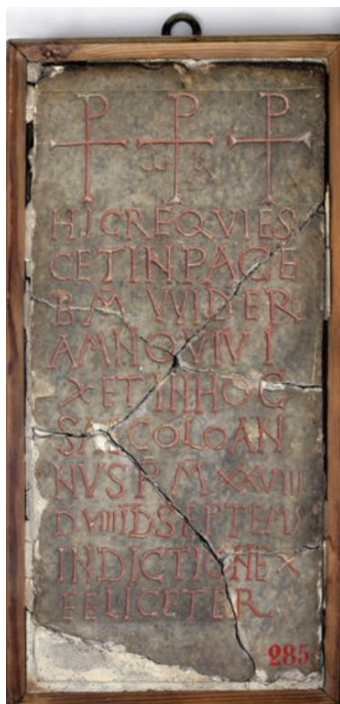 HIC REQVIES
CET IN PACE
B M VVIDER
AMN QVI VI
X ET IN HOC
SAECOLO AN
NVS P M XXVIII
D VIIII D SEPTEMB
INDICTIONE X
FELICETER
285